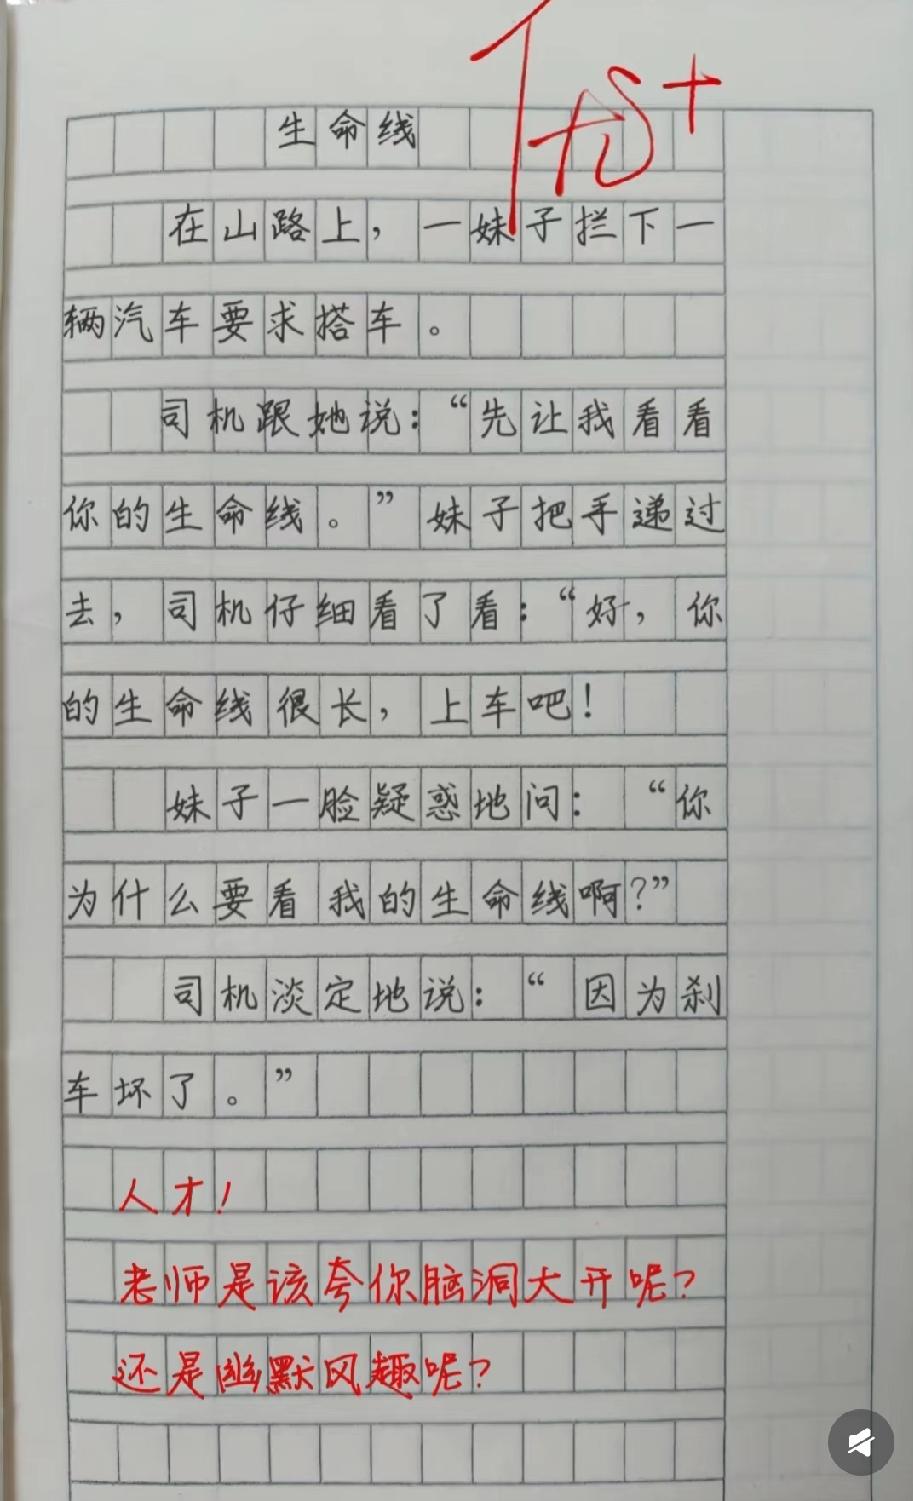 优+
生命线
在山路上，一妹子拦下一
辆汽车要求搭车。
司机跟她说：“先让我看看
你的生命线。”妹子把手递过
去，司机仔细看了看：“好，你
的生命线很长，上车吧！
妹子一脸疑惑地问：“你
为什么要看我的生命线啊?”
司机淡定地说：“因为刹
车坏了。”
人才！
老师是该夸你脑洞大开呢？
还是幽默风趣呢？